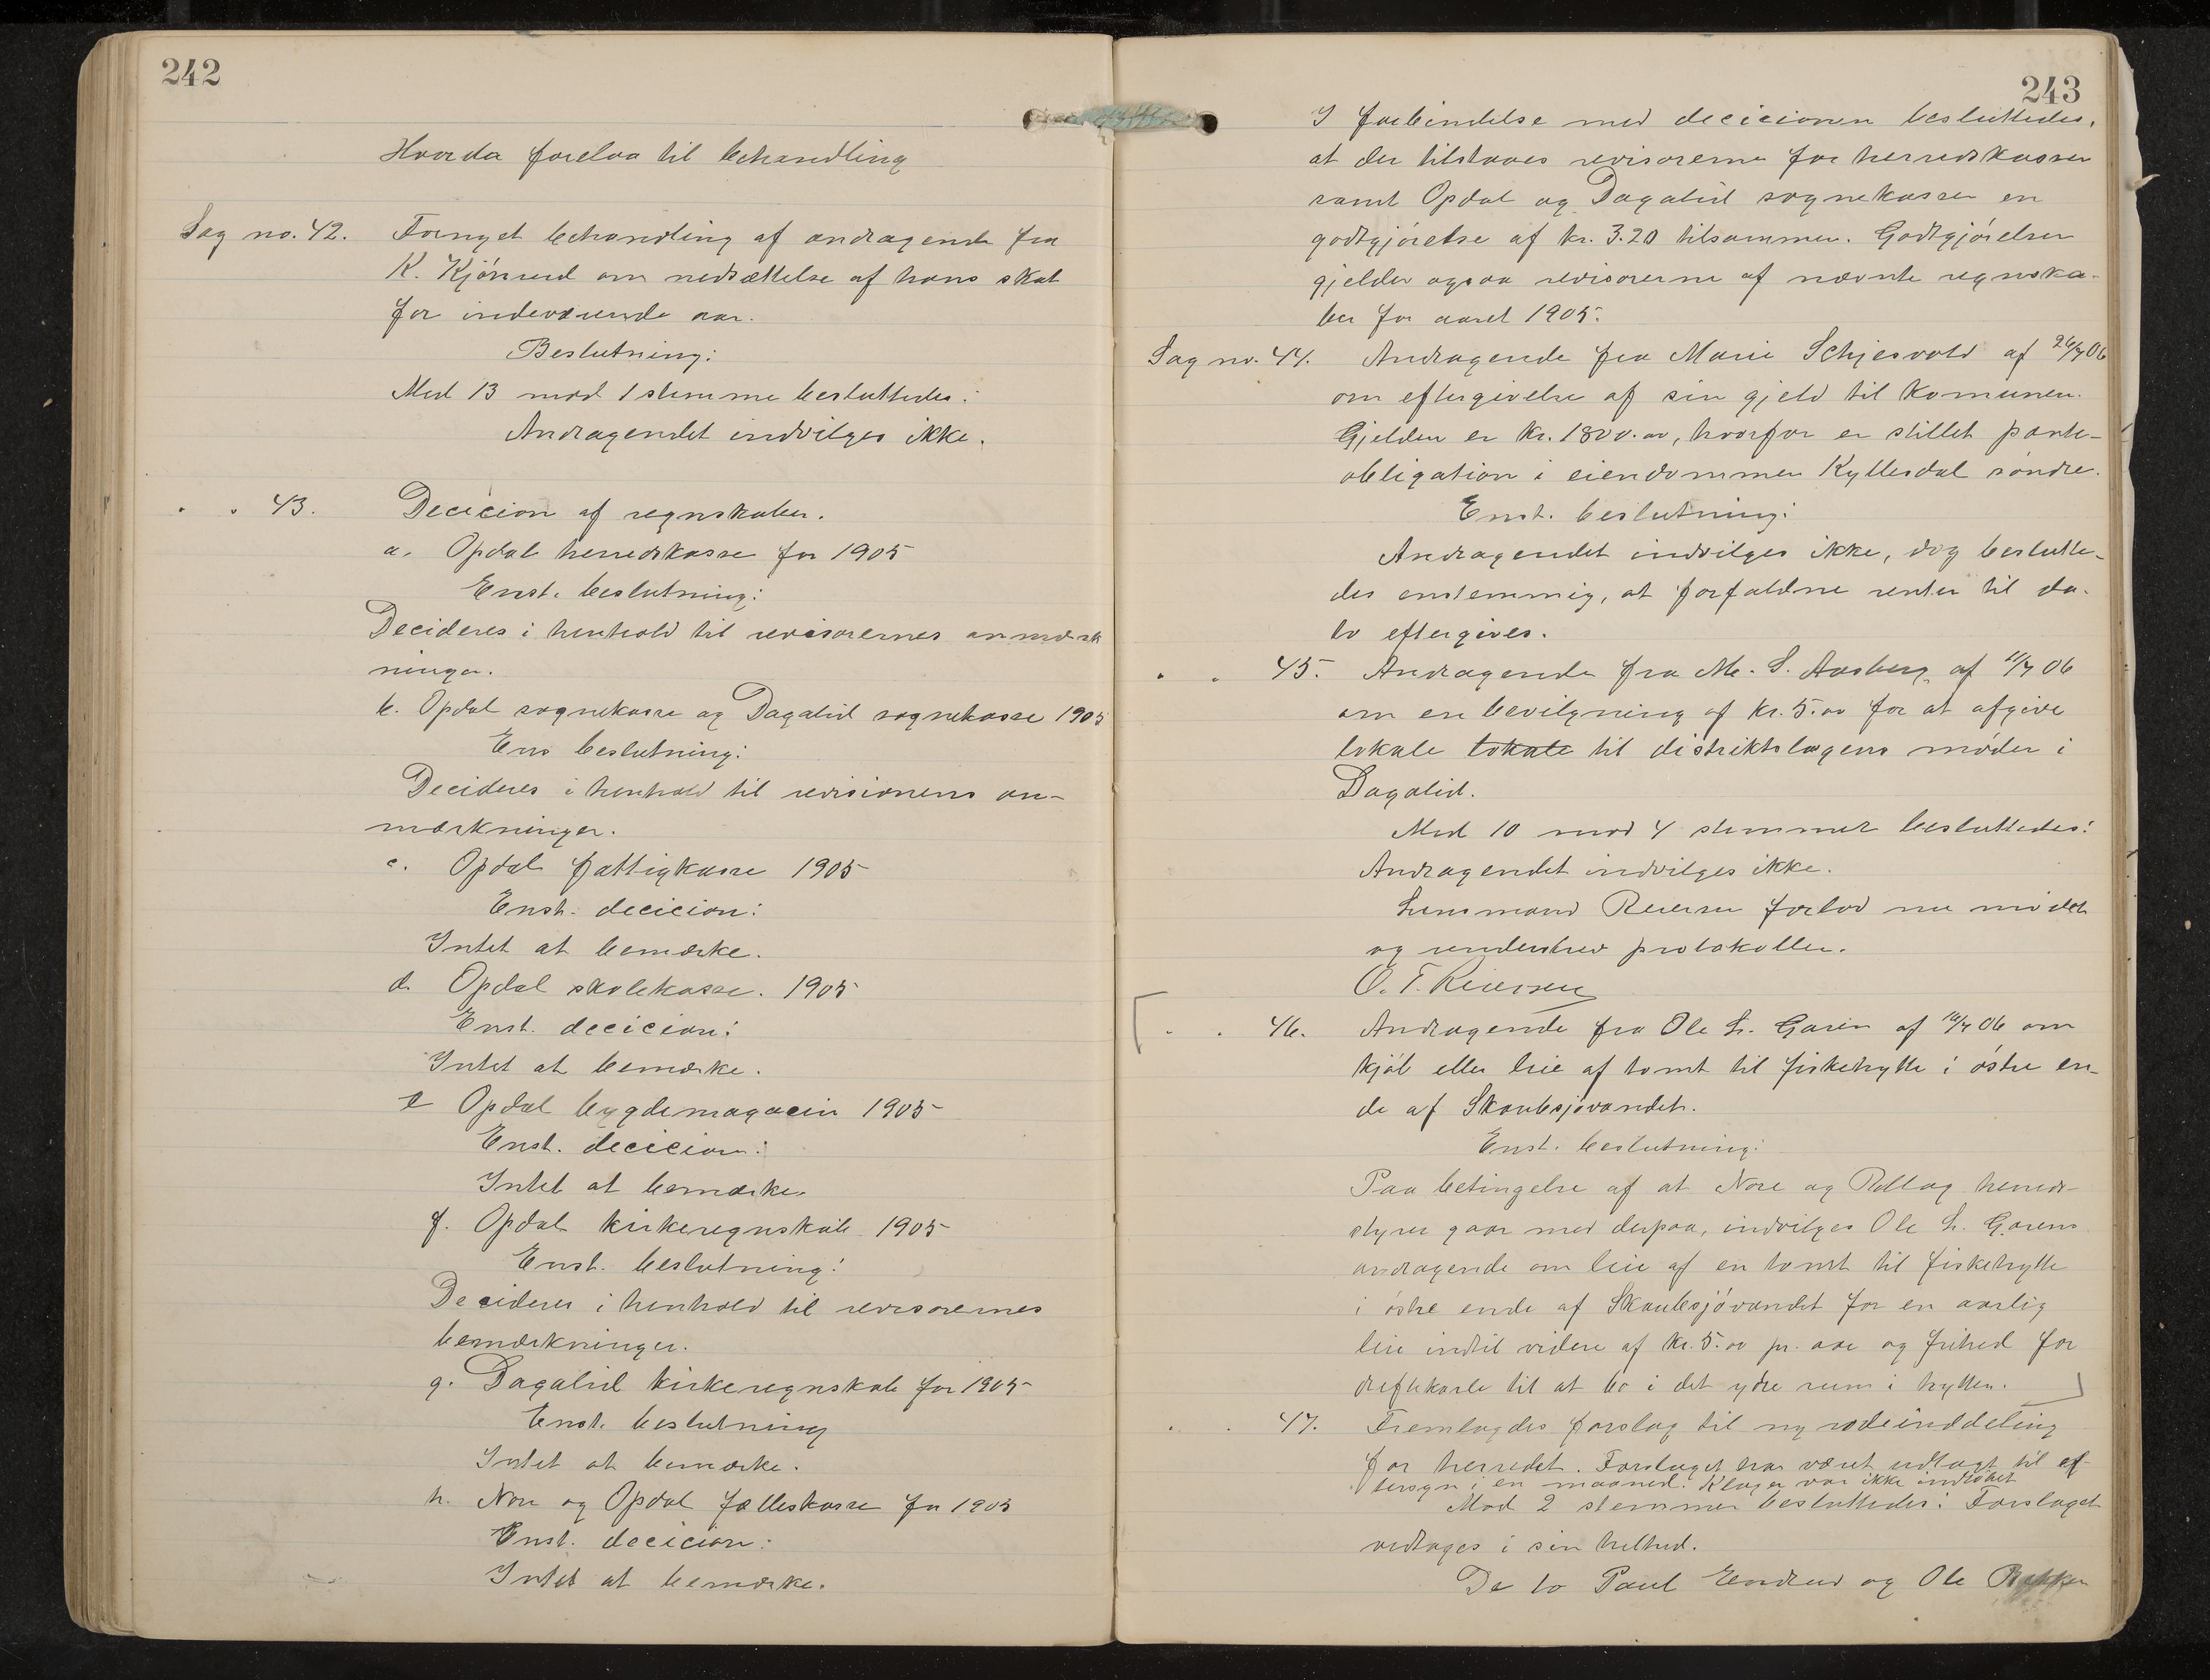 242
Hvorda forelaa til behandling
Sag no. 42. Fornyet behandling af andragende fra
K. Kjönerud om nedsættelse af hans skat
for indeværende aar.
Beslutning:
Med 13 mod 1 stemme besluttedes:
Andragendet indvilges ikke.
" " 43. Decicion af regnskaber.
a. Opdal herredskasse for 1905
Enst. beslutning:
Decideres i henhold til revisorernes anmærk
ninger.
b. Opdal sognekasse og Dagalid sognekasse 1905
Ens beslutning:
Decideres i henhold til revisionens an-
mærkninger.
c. Opdal fattigkasse 1905
Enst. decicion:
Intet at bemærke.
d. Opdal skolekasse. 1905
Enst. decicion:
Intet at bemærke.
e Opdal bygdemagacin 1905
Enst. decicion:
Intet at bemærke.
f. Opdal kirkeregnskab 1905
Enst. beslutning:
Decideres i henhold til revisorernes
bemærkninger.
g. Dagalid kirkeregnskab for 1905
Enst. beslutning
Intet at bemærke.
h. Nore og Opdal fælleskasse for 1905
Enst. decicion:
Intet at bemærke.
243
I forbindelse med decicionen besluttedes,
at der tilstaaes revisorerne for herredskassen
samt Opdal og Dagalid sognekasser en
godtgjörelse af kr. 3.20 tilsammen. Godtgjörelsen
gjelder ogsaa revisorerne af nævnte regnska-
ber for aaret 1905.
Sag no. 44. Andragende fra Marie Schjesvold af 26/7 06
om eftergivelse af sin gjeld til komunen.
Gjelden er kr. 1800.00, hvorfor er stillet pante-
obligation i eiendommen Kyllesdal söndre.
Enst. beslutning:
Andragendet indvilges ikke, dog beslutte-
des enstemmig, at forfaldne renter til da-
to eftergives.
" " 45. Andragende fra M. S. Aasberg af 11/7 06
om en bevilgning af kr. 5.00 for at afgive
lokale lokale til distriktslægens möder i
Dagalid.
Med 10 mod 4 stemmer besluttedes:
Andragendet indvilges ikke.
Lensmand Reiersen forlod nu mödet
og underskrev protokollen.
O. T. Reiersen
" " 46. Andragende fra Ole L. Garen af 16/7 06 om
kjöb eller leie af tomt til fiskehytte i östre en-
de af Skaubesjövandet.
Enst. beslutning:
Paa betingelse af at Nore og Rollag herreds-
styrer gaar med derpaa, indvilges Ole L. Garens
andragende om leie af en tomt til fiskehytte
i östre ende af Skaubesjövandet for en aarlig
leie indtil videre af kr. 5.00 pr. aar og frihed for
driftekarle til at bo i det ydre rum i hytten.
" " 47. Fremlagdes forslag til ny rodeinddeling
for herredet. Forslaget har været udlagt til ef-
tersyn i en maaned. Klager var ikke indlöbet
Mod 2 stemmer besluttedes: Forslaget
vedtages i sin helhed.
De to Paul Endrud og Ole Bakken